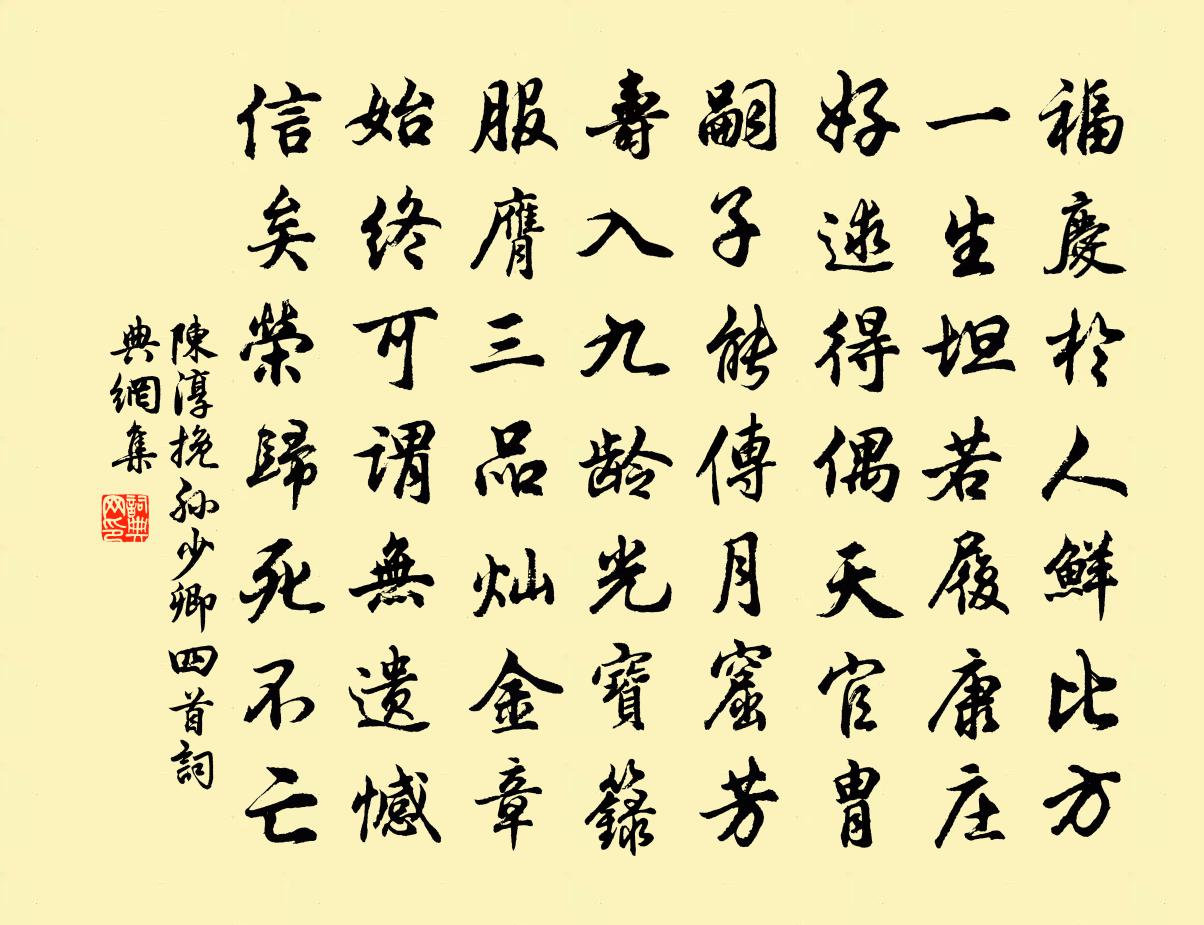 福慶於人鮮比方
一生坦若履康庄
好逑得偶天官胄
嗣子能傳月窟芳
壽入九齡光寶籙
服膺三品灿金章
始終可謂無遗憾
信矣榮歸死不亡
陳淳挽孙少卿四首詞
典網集
詞典
网印